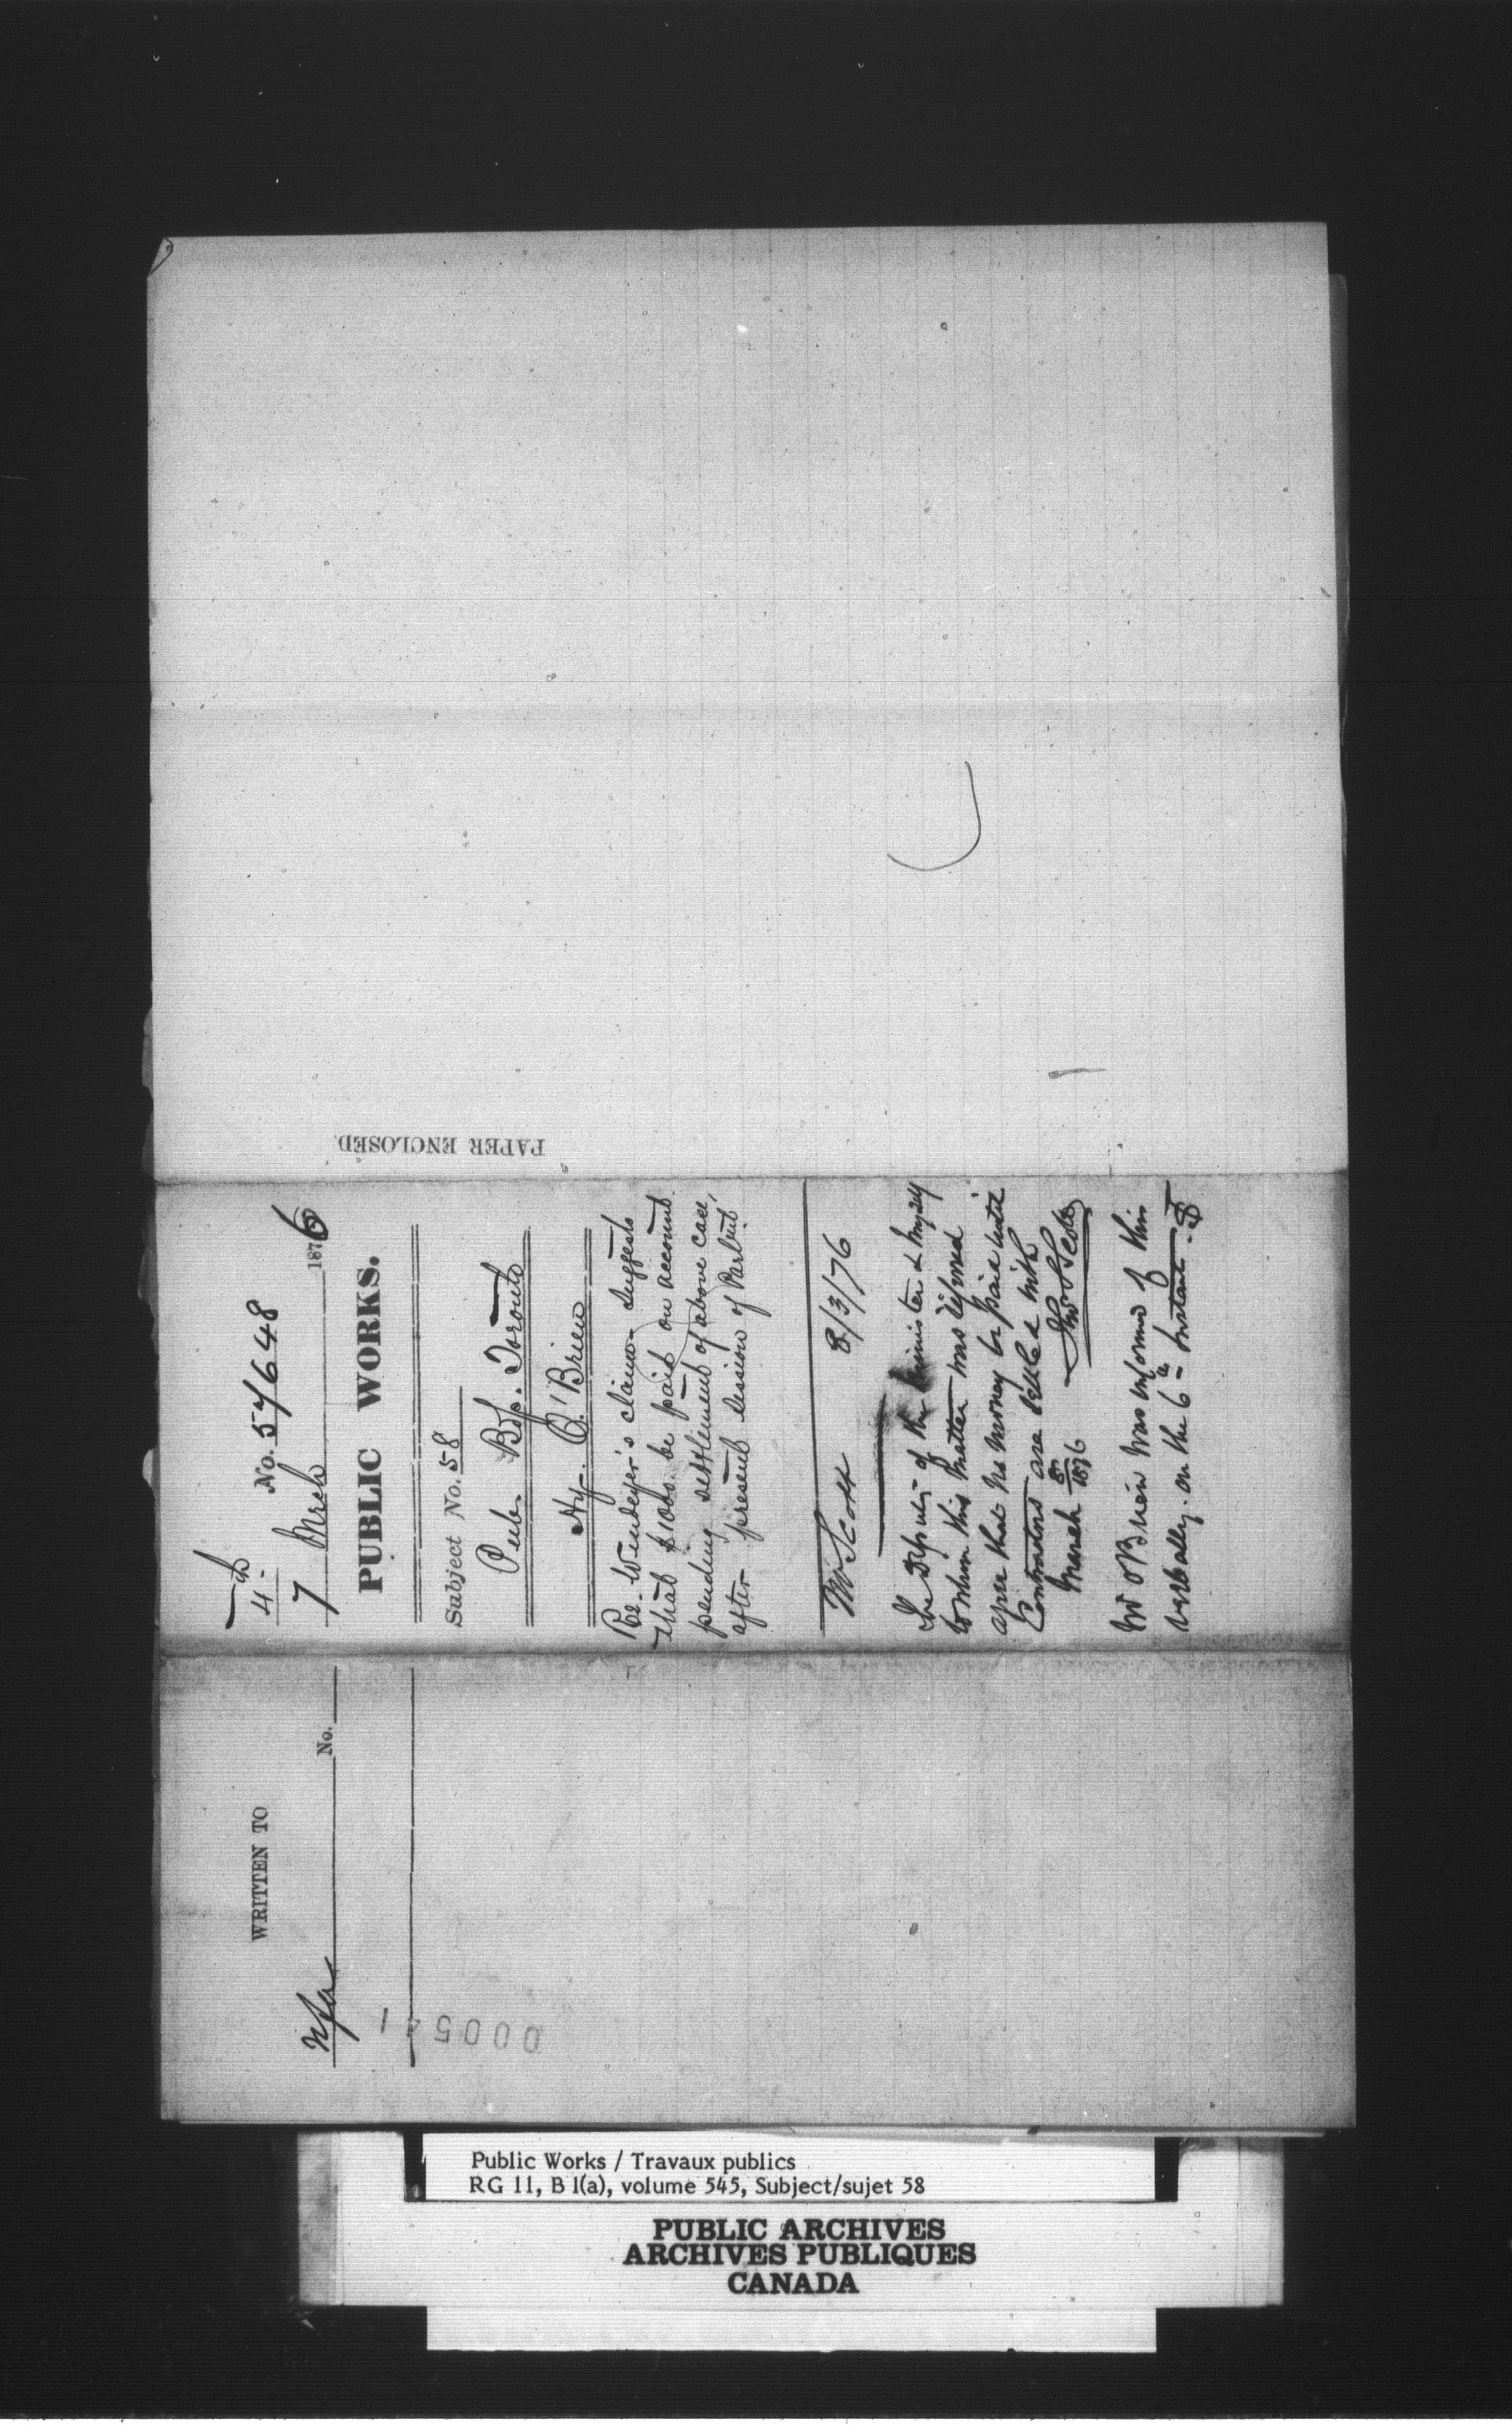 4th
No. 57648
7 Mrch 1876
PUBLIC WORKS.
Subject No. 58
Pub. Bdgs. Toronto
Hy. O'Brien
Re- Windeyer's claim- Suggests
that $1000. be paid on account
pending settlement of above case,
after present Session of Parlint
Mr Scott 8/3/76
The Deputy of the Minister & myself
to whom this matter was referred
agree that no money be paid until
Contractors are settled with
March 8th 1876 Thos S Scott
Mr O'Brien was informed of this
verbally. on the 6th Instant.
PAPER ENCLOSED
WRITTEN TO
nfa No.
000541
Public Works / Travaux publics
RG 11, B 1(a), volume 545, Subject/sujet 58
PUBLIC ARCHIVES
ARCHIVES PUBLIQUES
CANADA